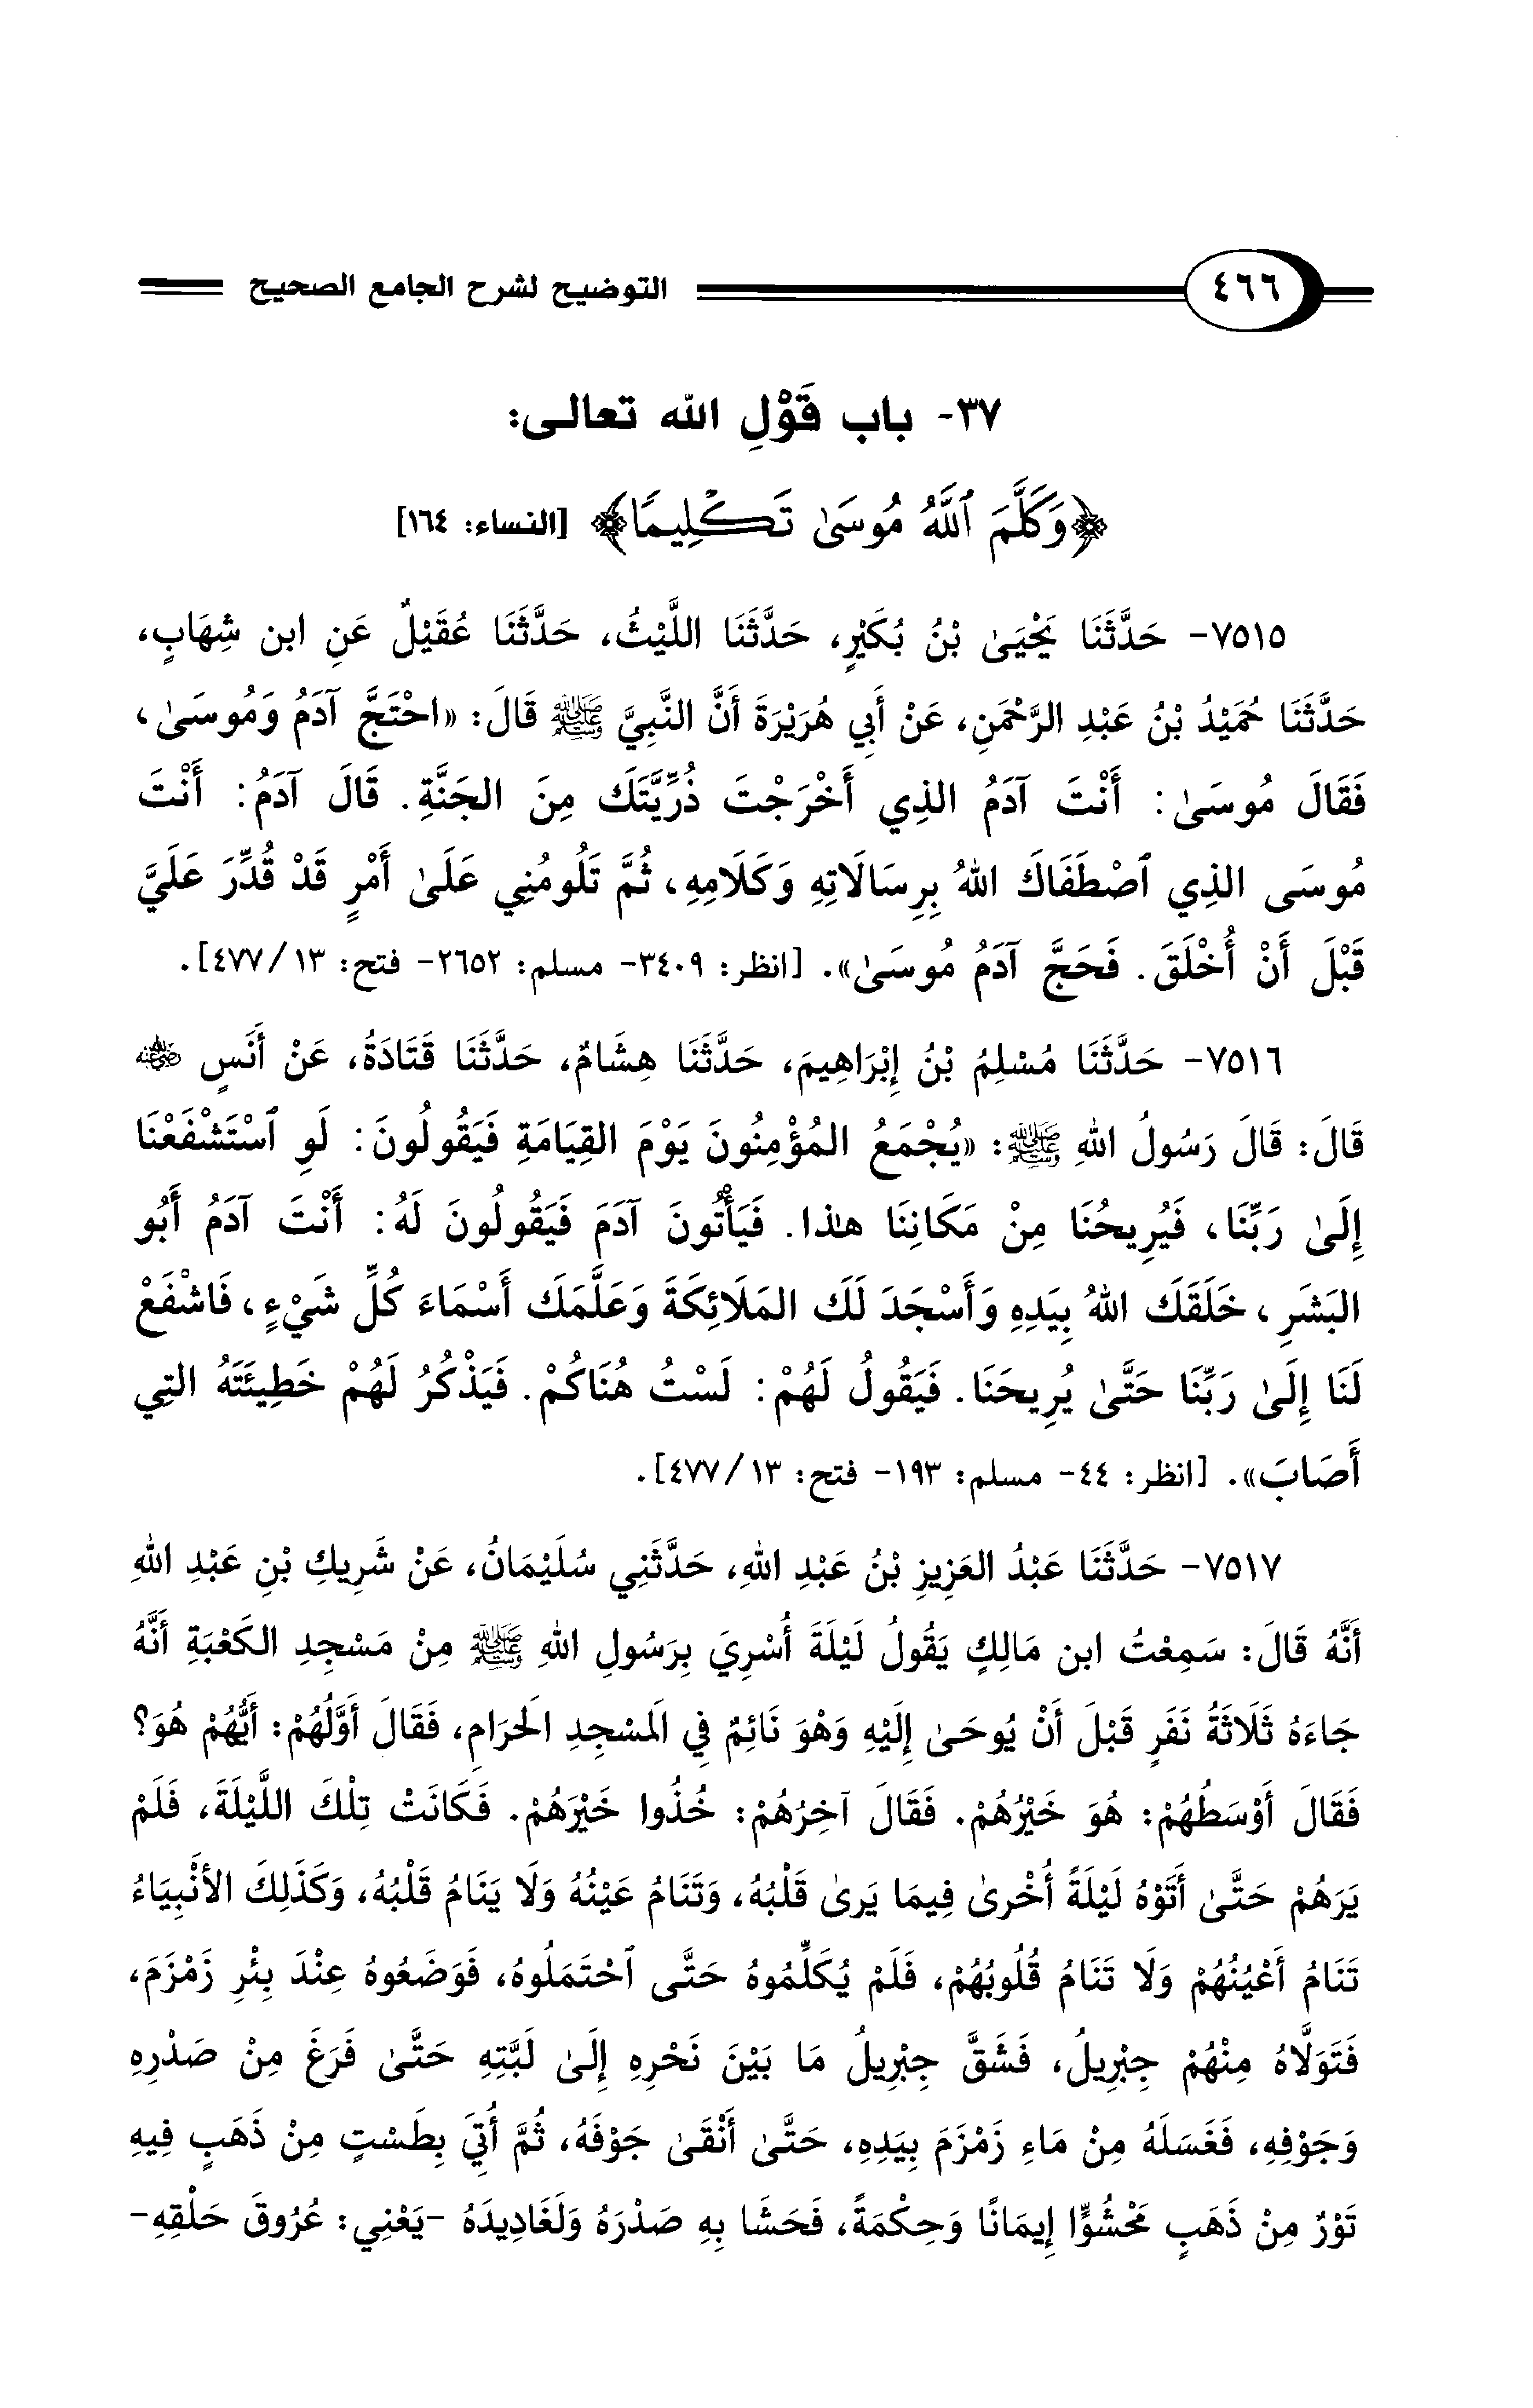 ٤٦٦ التوضيح لشرح الجامع الصحيح
٣٧- باب قَوْلِ الله تعالى:
﴿وَكَلَّمَ ٱللَّهُ مُوسَىٰ تَكْلِيمًا﴾ [النساء: ١٦٤]
٧٥١٥- حَدَّثَنَا يَحْيَىٰ بْنُ بُكَيْرٍ، حَدَّثَنَا اللَّيْثُ، حَدَّثَنَا عُقَيْلٌ عَنِ ابن شِهَابٍ،
حَدَّثَنَا حُمَيْدُ بْنُ عَبْدِ الرَّحْمَنِ، عَنْ أَبِي هُرَيْرَةَ أَنَّ النَّبِيَّ ﷺ قَالَ: «احْتَجَّ آدَمُ وَمُوسَىٰ،
فَقَالَ مُوسَىٰ: أَنْتَ آدَمُ الذِي أَخْرَجْتَ ذُرِّيَّتَكَ مِنَ الجَنَّةِ. قَالَ آدَمُ: أَنْتَ
مُوسَى الذِي ٱصْطَفَاكَ اللهُ بِرِسَالَاتِهِ وَكَلَامِهِ، ثُمَّ تَلُومُنِي عَلَىٰ أَمْرٍ قَدْ قُدِّرَ عَلَيَّ
قَبْلَ أَنْ أُخْلَقَ. فَحَجَّ آدَمُ مُوسَىٰ». [انظر: ٣٤٠٩- مسلم: ٢٦٥٢- فتح: ١٣/ ٤٧٧].
٧٥١٦- حَدَّثَنَا مُسْلِمُ بْنُ إِبْرَاهِيمَ، حَدَّثَنَا هِشَامٌ، حَدَّثَنَا قَتَادَةُ، عَنْ أَنَسٍ رضي الله عنه
قَالَ: قَالَ رَسُولُ اللهِ ﷺ: «يُجْمَعُ المُؤْمِنُونَ يَوْمَ القِيَامَةِ فَيَقُولُونَ: لَوِ ٱسْتَشْفَعْنَا
إِلَىٰ رَبِّنَا، فَيُرِيحُنَا مِنْ مَكَانِنَا هٰذا. فَيَأْتُونَ آدَمَ فَيَقُولُونَ لَهُ: أَنْتَ آدَمُ أَبُو
البَشَرِ، خَلَقَكَ اللهُ بِيَدِهِ وَأَسْجَدَ لَكَ المَلَائِكَةَ وَعَلَّمَكَ أَسْمَاءَ كُلِّ شَيْءٍ، فَاشْفَعْ
لَنَا إِلَىٰ رَبِّنَا حَتَّىٰ يُرِيحَنَا. فَيَقُولُ لَهُمْ: لَسْتُ هُنَاكُمْ. فَيَذْكُرُ لَهُمْ خَطِيئَتَهُ التِي
أَصَابَ». [انظر: ٤٤- مسلم: ١٩٣- فتح: ١٣/ ٤٧٧].
٧٥١٧- حَدَّثَنَا عَبْدُ العَزِيزِ بْنُ عَبْدِ اللهِ، حَدَّثَنِي سُلَيْمَانُ، عَنْ شَرِيكِ بْنِ عَبْدِ اللهِ
أَنَّهُ قَالَ: سَمِعْتُ ابن مَالِكٍ يَقُولُ لَيْلَةَ أُسْرِيَ بِرَسُولِ اللهِ ﷺ مِنْ مَسْجِدِ الكَعْبَةِ أَنَّهُ
جَاءَهُ ثَلَاثَةُ نَفَرٍ قَبْلَ أَنْ يُوحَىٰ إِلَيْهِ وَهْوَ نَائِمٌ فِي الَمسْجِدِ الَحرَامِ، فَقَالَ أَوَّلُهُمْ: أَيُّهُمْ هُوَ؟
فَقَالَ أَوْسَطُهُمْ: هُوَ خَيْرُهُمْ. فَقَالَ آخِرُهُمْ: خُذُوا خَيْرَهُمْ. فَكَانَتْ تِلْكَ اللَّيْلَةَ، فَلَمْ
يَرَهُمْ حَتَّىٰ أَتَوْهُ لَيْلَةً أُخْرىٰ فِيمَا يَرىٰ قَلْبُهُ، وَتَنَامُ عَيْنُهُ وَلَا يَنَامُ قَلْبُهُ، وَكَذَلِكَ الأَنْبِيَاءُ
تَنَامُ أَعْيُنُهُمْ وَلَا تَنَامُ قُلُوبُهُمْ، فَلَمْ يُكَلِّمُوهُ حَتَّى ٱحْتَمَلُوهُ، فَوَضَعُوهُ عِنْدَ بِئْرِ زَمْزَمَ،
فَتَوَلَّاهُ مِنْهُمْ جِبْرِيلُ، فَشَقَّ جِبْرِيلُ مَا بَيْنَ نَحْرِهِ إِلَىٰ لَبَّتِهِ حَتَّىٰ فَرَغَ مِنْ صَدْرِهِ
وَجَوْفِهِ، فَغَسَلَهُ مِنْ مَاءِ زَمْزَمَ بِيَدِهِ، حَتَّىٰ أَنْقَىٰ جَوْفَهُ، ثُمَّ أُتِيَ بِطَسْتٍ مِنْ ذَهَبٍ فِيهِ
تَوْرٌ مِنْ ذَهَبٍ مَحْشُوًّا إِيمَانًا وَحِكْمَةً، فَحَشَا بِهِ صَدْرَهُ وَلَغَادِيدَهُ -يَعْنِي: عُرُوقَ حَلْقِهِ-